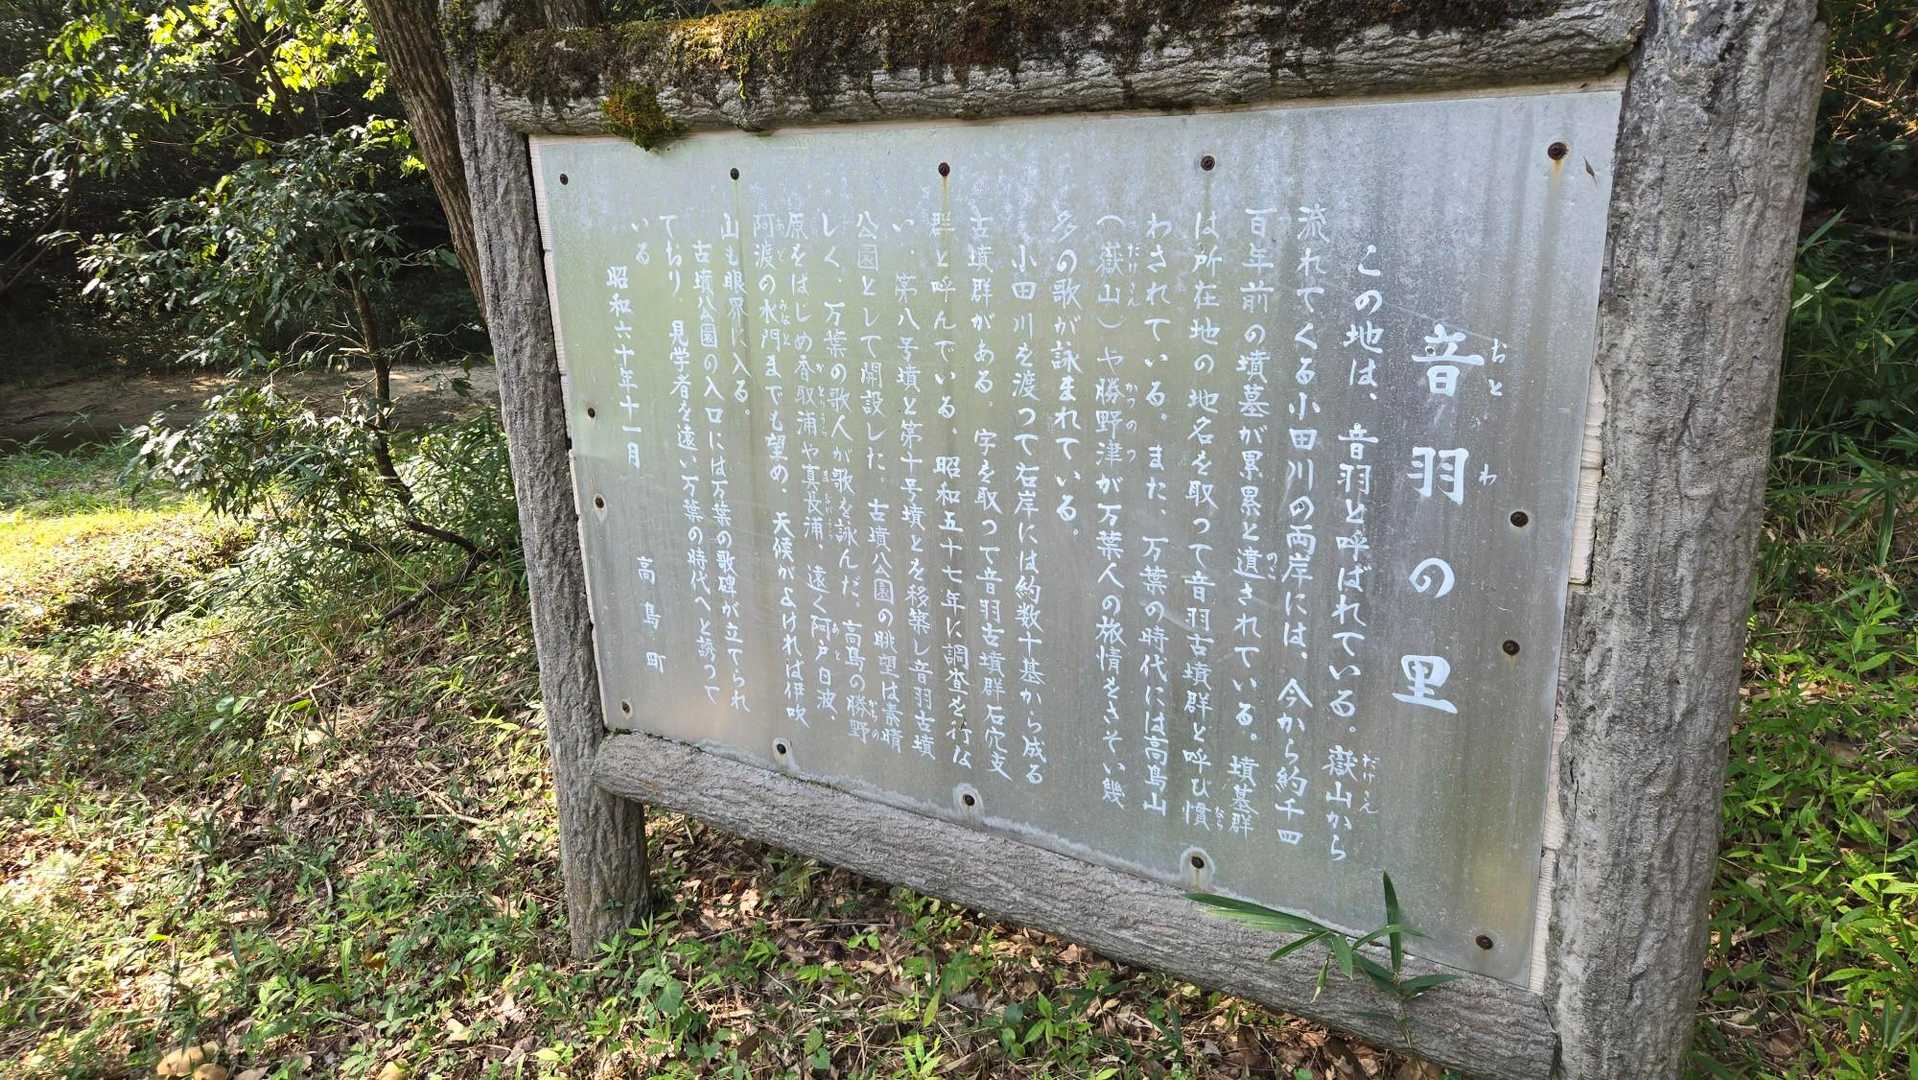 音羽の里
おとわ
この地は、音羽と呼ばれている。嶽山から
だけさん
流れてくる小田川の両岸には、今から約千四
百年前の墳墓が累累と遺されている。墳墓群
のこ
は所在地の地名を取つて音羽古墳群と呼び慣
なら
わされている。また、万葉の時代には高島山
(嶽山)や勝野津が万葉人の旅情をさそい幾
だけさん かつのつ
多の歌が詠まれている。
小田川を渡つて右岸には約数十基から成る
古墳群がある。字を取つて音羽古墳群石穴支
群と呼んでいる。昭和五十七年に調査を行な
い、第八号墳と第十号墳とを移築し音羽古墳
公園として開設した。古墳公園の眺望は素晴
しく、万葉の歌人が歌を詠んだ、高島の勝野
がちの
原をはじめ香取浦や真長浦、遠く阿戸白波、
かとりうら あと
阿渡の水門までも望め、天候がよければ伊吹
あど みなと
山も眼界に入る。
古墳公園の入口には万葉の歌碑が立てられ
ており、見学者を遠い万葉の時代へと誘つて
いる
昭和六十年十一月
高島町